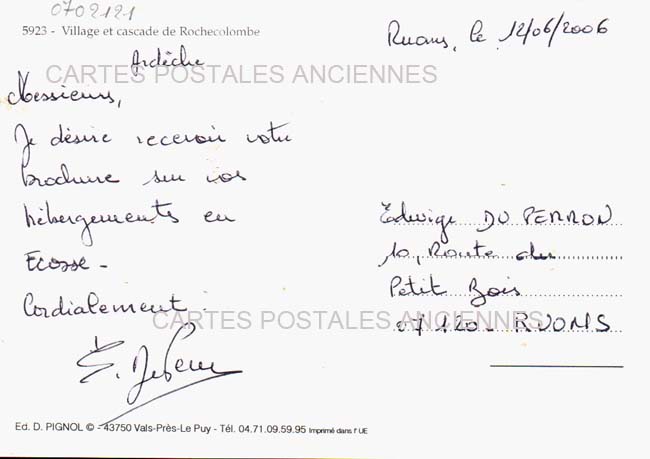 0702121
5923 - Village et cascade de Rochecolombe
Ardèche
Ruoms, le 12/06/2006
CARTES POSTALES ANCIENNES
Messieurs,
Je désire recevoir votre
brochure sur vos
hébergements en
Ecosse -
Cordialement.
Edwige DU PERRON
10, Route du
Petit Bois
07120 - RUOMS
CARTES POSTALES ANCIENNES
Ed. D. PIGNOL © - 43750 Vals-Près-Le Puy - Tél. 04.71.09.59.95 Imprimé dans l'UE